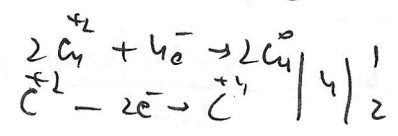 2Cu⁺² + 4e⁻ → 2Cu⁰ | 4 | 1
C⁺² − 2e⁻ → C⁺⁴ | | 2